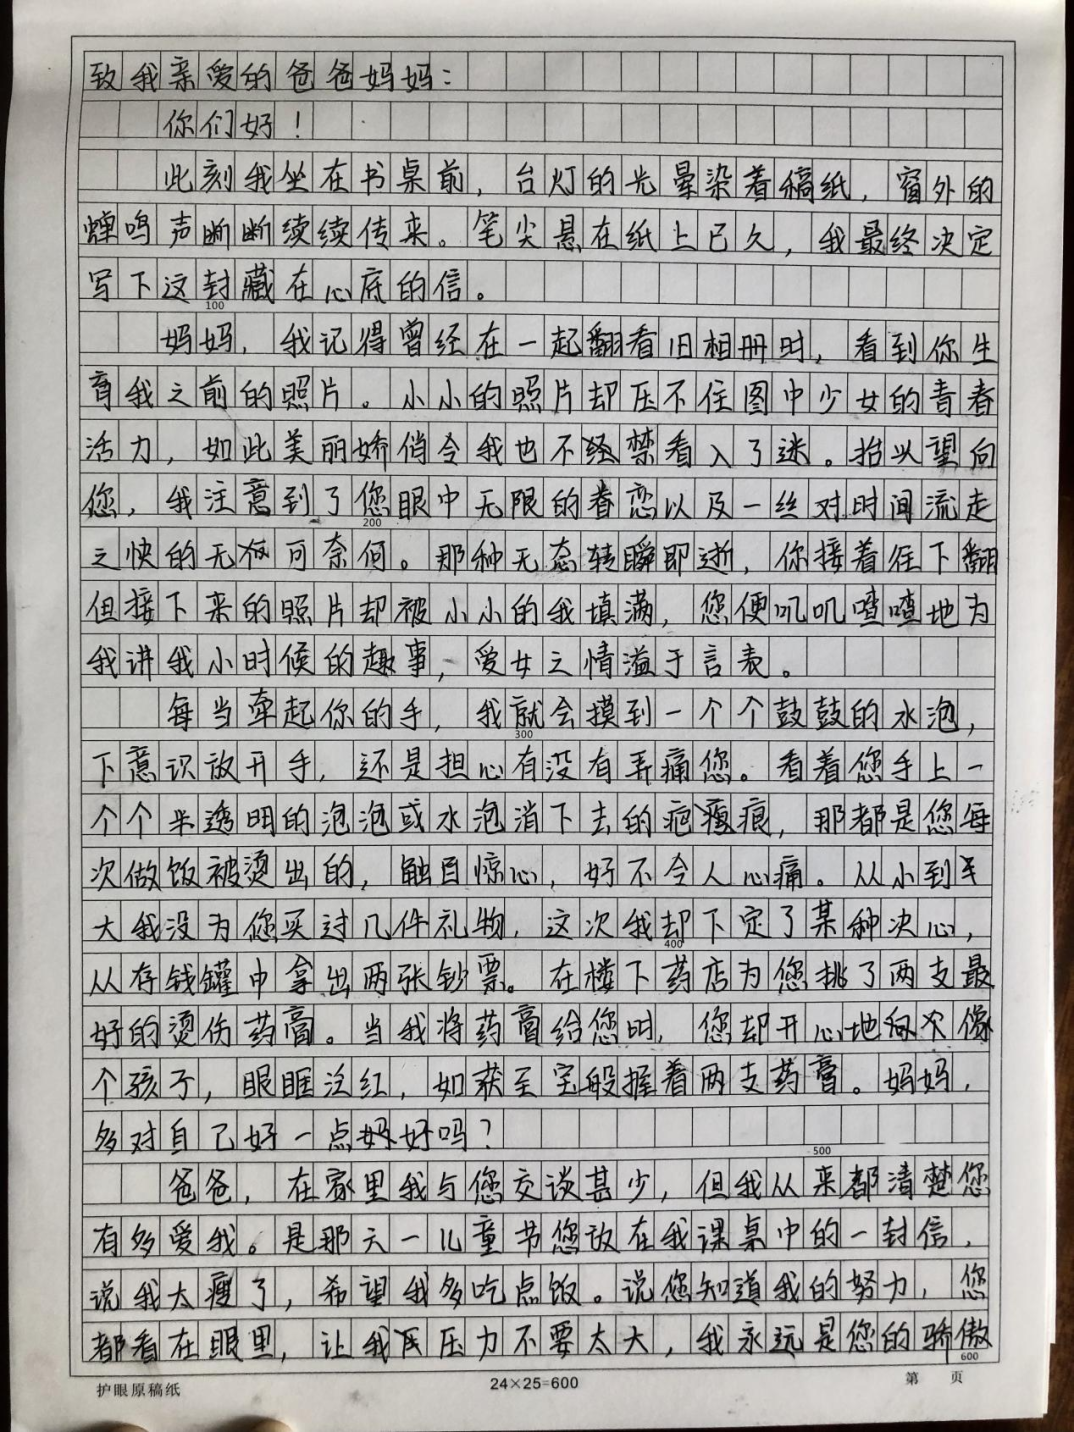 致我亲爱的爸爸妈妈：
你们好！
此刻我坐在书桌前，台灯的光晕染着稿纸，窗外的
蝉鸣声断断续续传来。笔尖悬在纸上已久，我最终决定
写下这封藏在心底的信。
100
妈妈，我记得曾经在一起翻看旧相册时，看到你生
育我之前的照片。小小的照片却压不住图中少女的青春
活力，如此美丽娇俏令我也不经禁看入了迷。抬以望向
您，我注意到了您眼中无限的眷恋以及一丝对时间流走
200
之快的无可奈何。那种无态转瞬即逝，你接着往下翻
但接下来的照片却被小小的我填满，您便叽叽喳喳地为
我讲我小时候的趣事，爱女之情溢于言表。
每当牵起你的手，我就会摸到一个个鼓鼓的水泡，
300
下意识放开手，还是担心有没有弄痛您。看着您手上一
个个半透明的泡泡或水泡消下去的疤痕，那都是您每
次做饭被烫出的，触目惊心，好不令人心痛。从小到
大我没为您买过几件礼物，这次我却下定了某种决心，
400
从存钱罐中拿出两张钞票。在楼下药店为您挑了两支最
好的烫伤药膏。当我将药膏给您时，您却开心地像
个孩子，眼眶泛红，如获至宝般握着两支药膏。妈妈，
多对自己好一点好吗？
500
爸爸，在家里我与您交谈甚少，但我从来都清楚您
有多爱我。是那天一儿童节您放在我课桌中的一封信，
说我太瘦了，希望我多吃点饭。说您知道我的努力，您
都看在眼里，让我压力不要太大，我永远是您的骄傲
600
护眼原稿纸
24×25=600
第 页